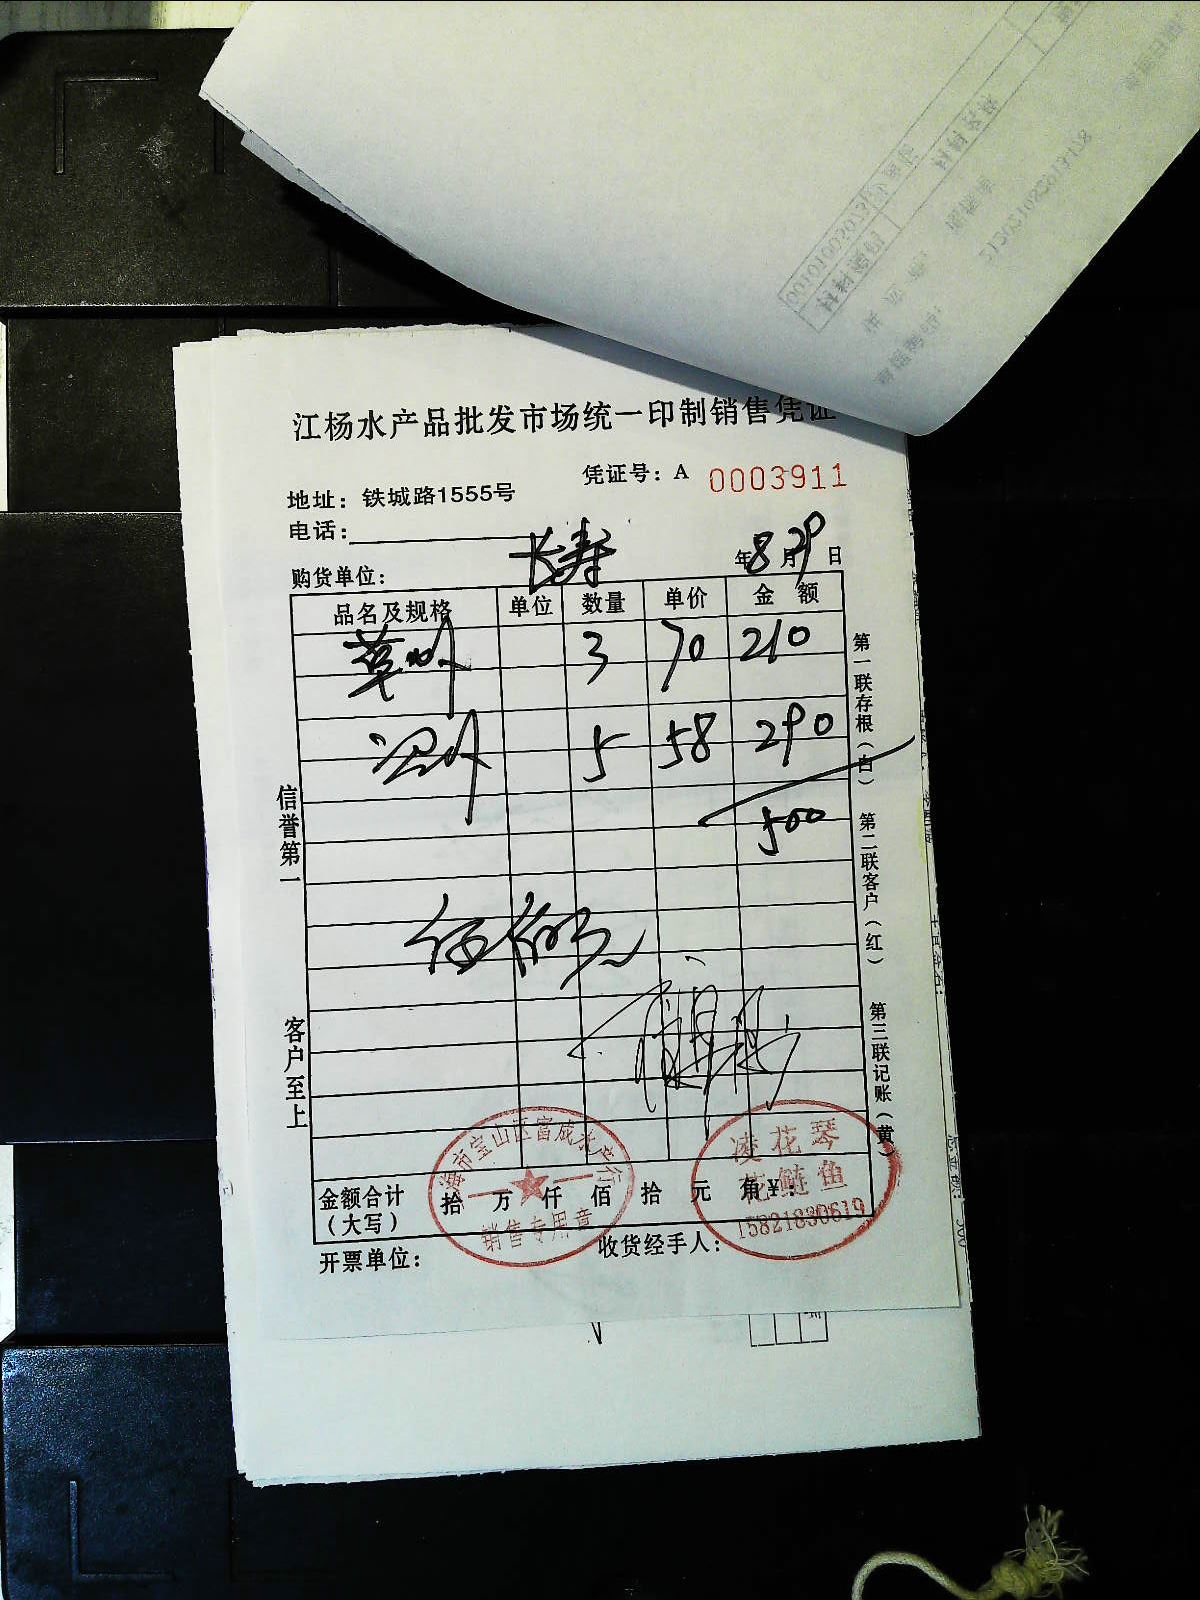 江杨水产品批发市场统一印制销售凭证
凭证号：A 0003911
地址：铁城路1555号
电话：
购货单位： 长寿 年 8 月 29 日
品名及规格 单位 数量 单价 金 额
3 70 210
5 58 290
500
信誉第一
客户至上
第一联存根（白）
第二联客户（红）
第三联记账（黄）
上海市宝山区富成水产行
销售专用章
凌花琴
花鲢鱼
15821830619
金额合计（大写） 拾 万 仟 佰 拾 元 角 ¥：
开票单位： 收货经手人：